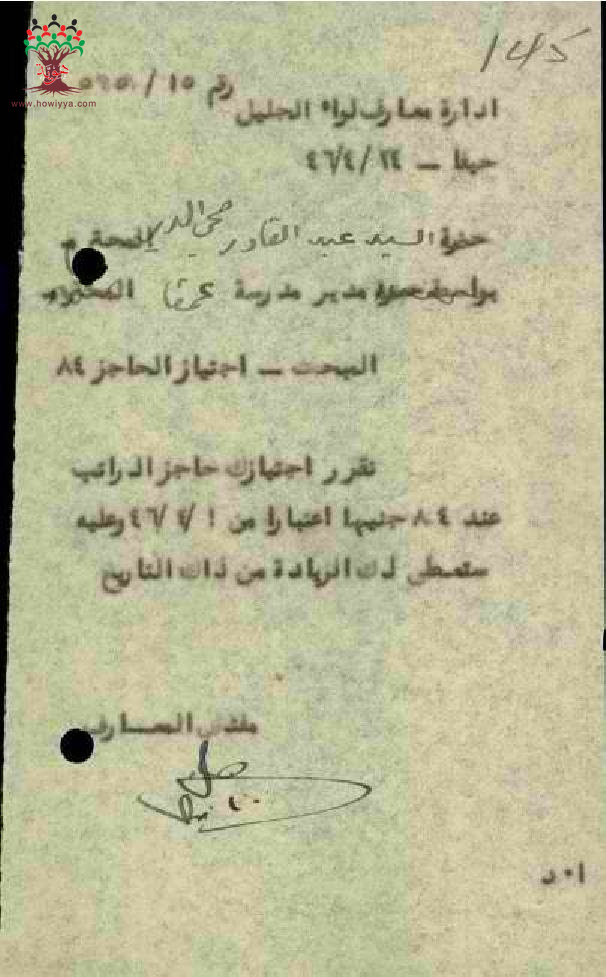 145
www.howiyya.com
رقم ١٥ /
ادارة معارف لواء الجليل
حيفا – ٤٦/٤/٢٤
حضرة السيد عبد القادر محي الدين المحترم
بواسطة حضرة مدير مدرسة المحترم
المبحث – اجتياز الحاجز ٨٤
تقرر اجتيازك حاجز الراتب
عند ٨٤ جنيها اعتبارا من ٤٦/٤/١ وعليه
ستعطى لك الزيادة من ذلك التاريخ
مفتش المعارف
ا٠د